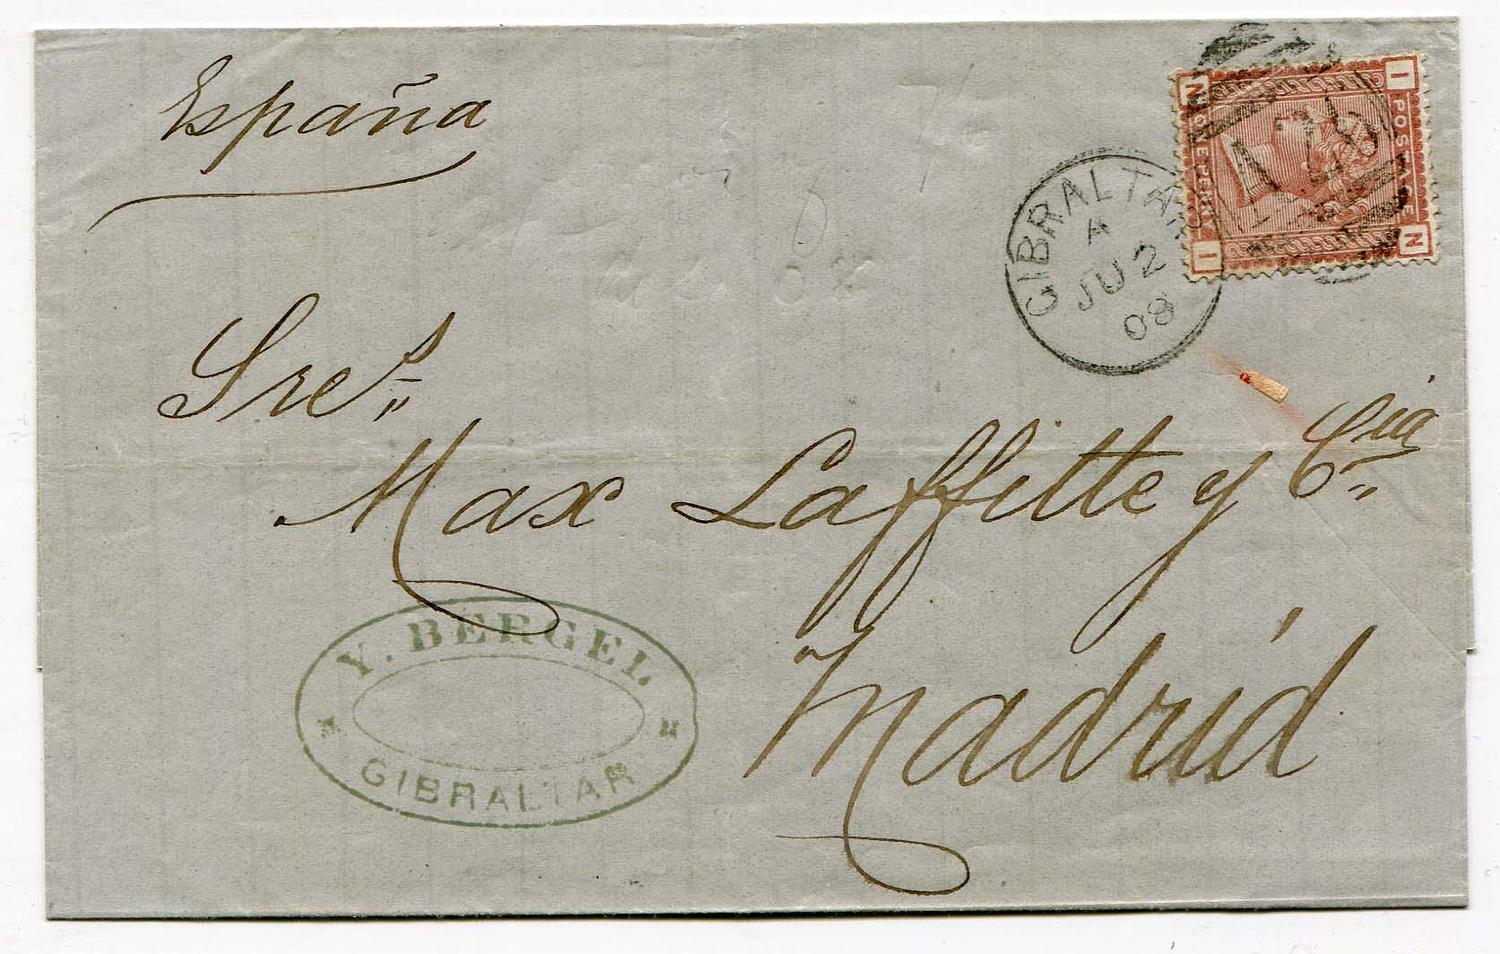 España
Sres
Max Laffitte y Cia
Madrid
GIBRALTAR
A
JU 2
08
A26
POSTAGE
ONE PENNY
I
N
N
I
Y. BERGEL
GIBRALTAR